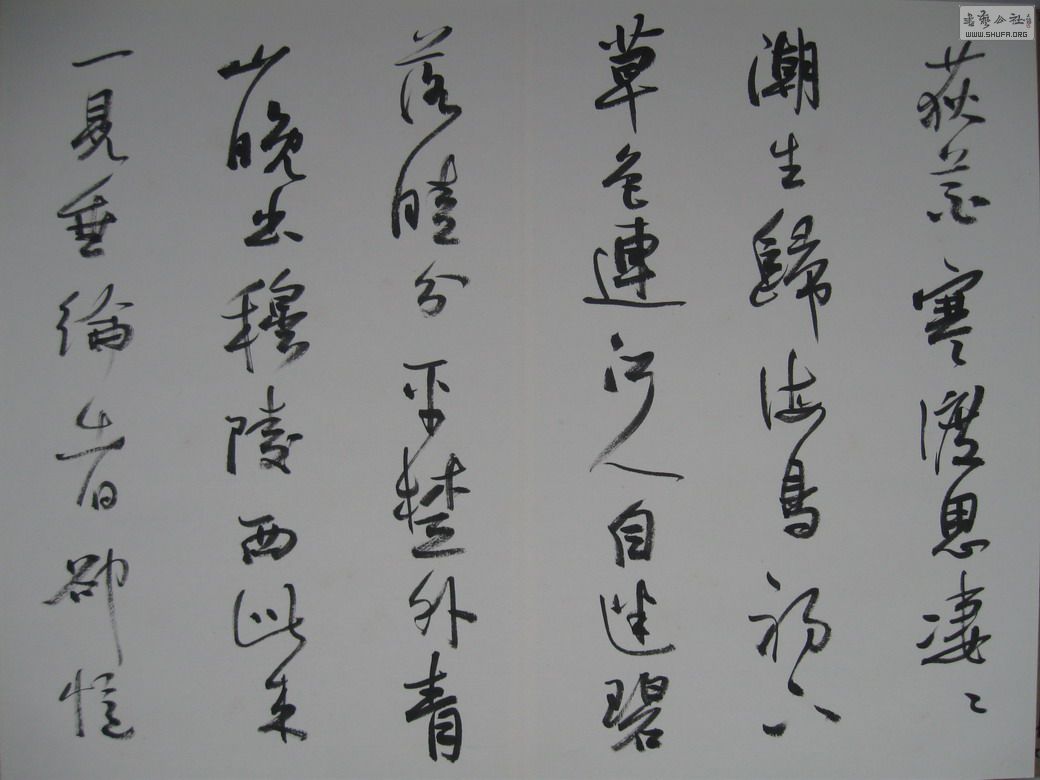 荻花寒渡思凄々
潮生歸海鳥初下
草色連江人自迷碧
落晴分平楚外青
山晚出穆陵西此来
一見垂綸者卻憶
書藝公社
WWW.SHUFA.ORG